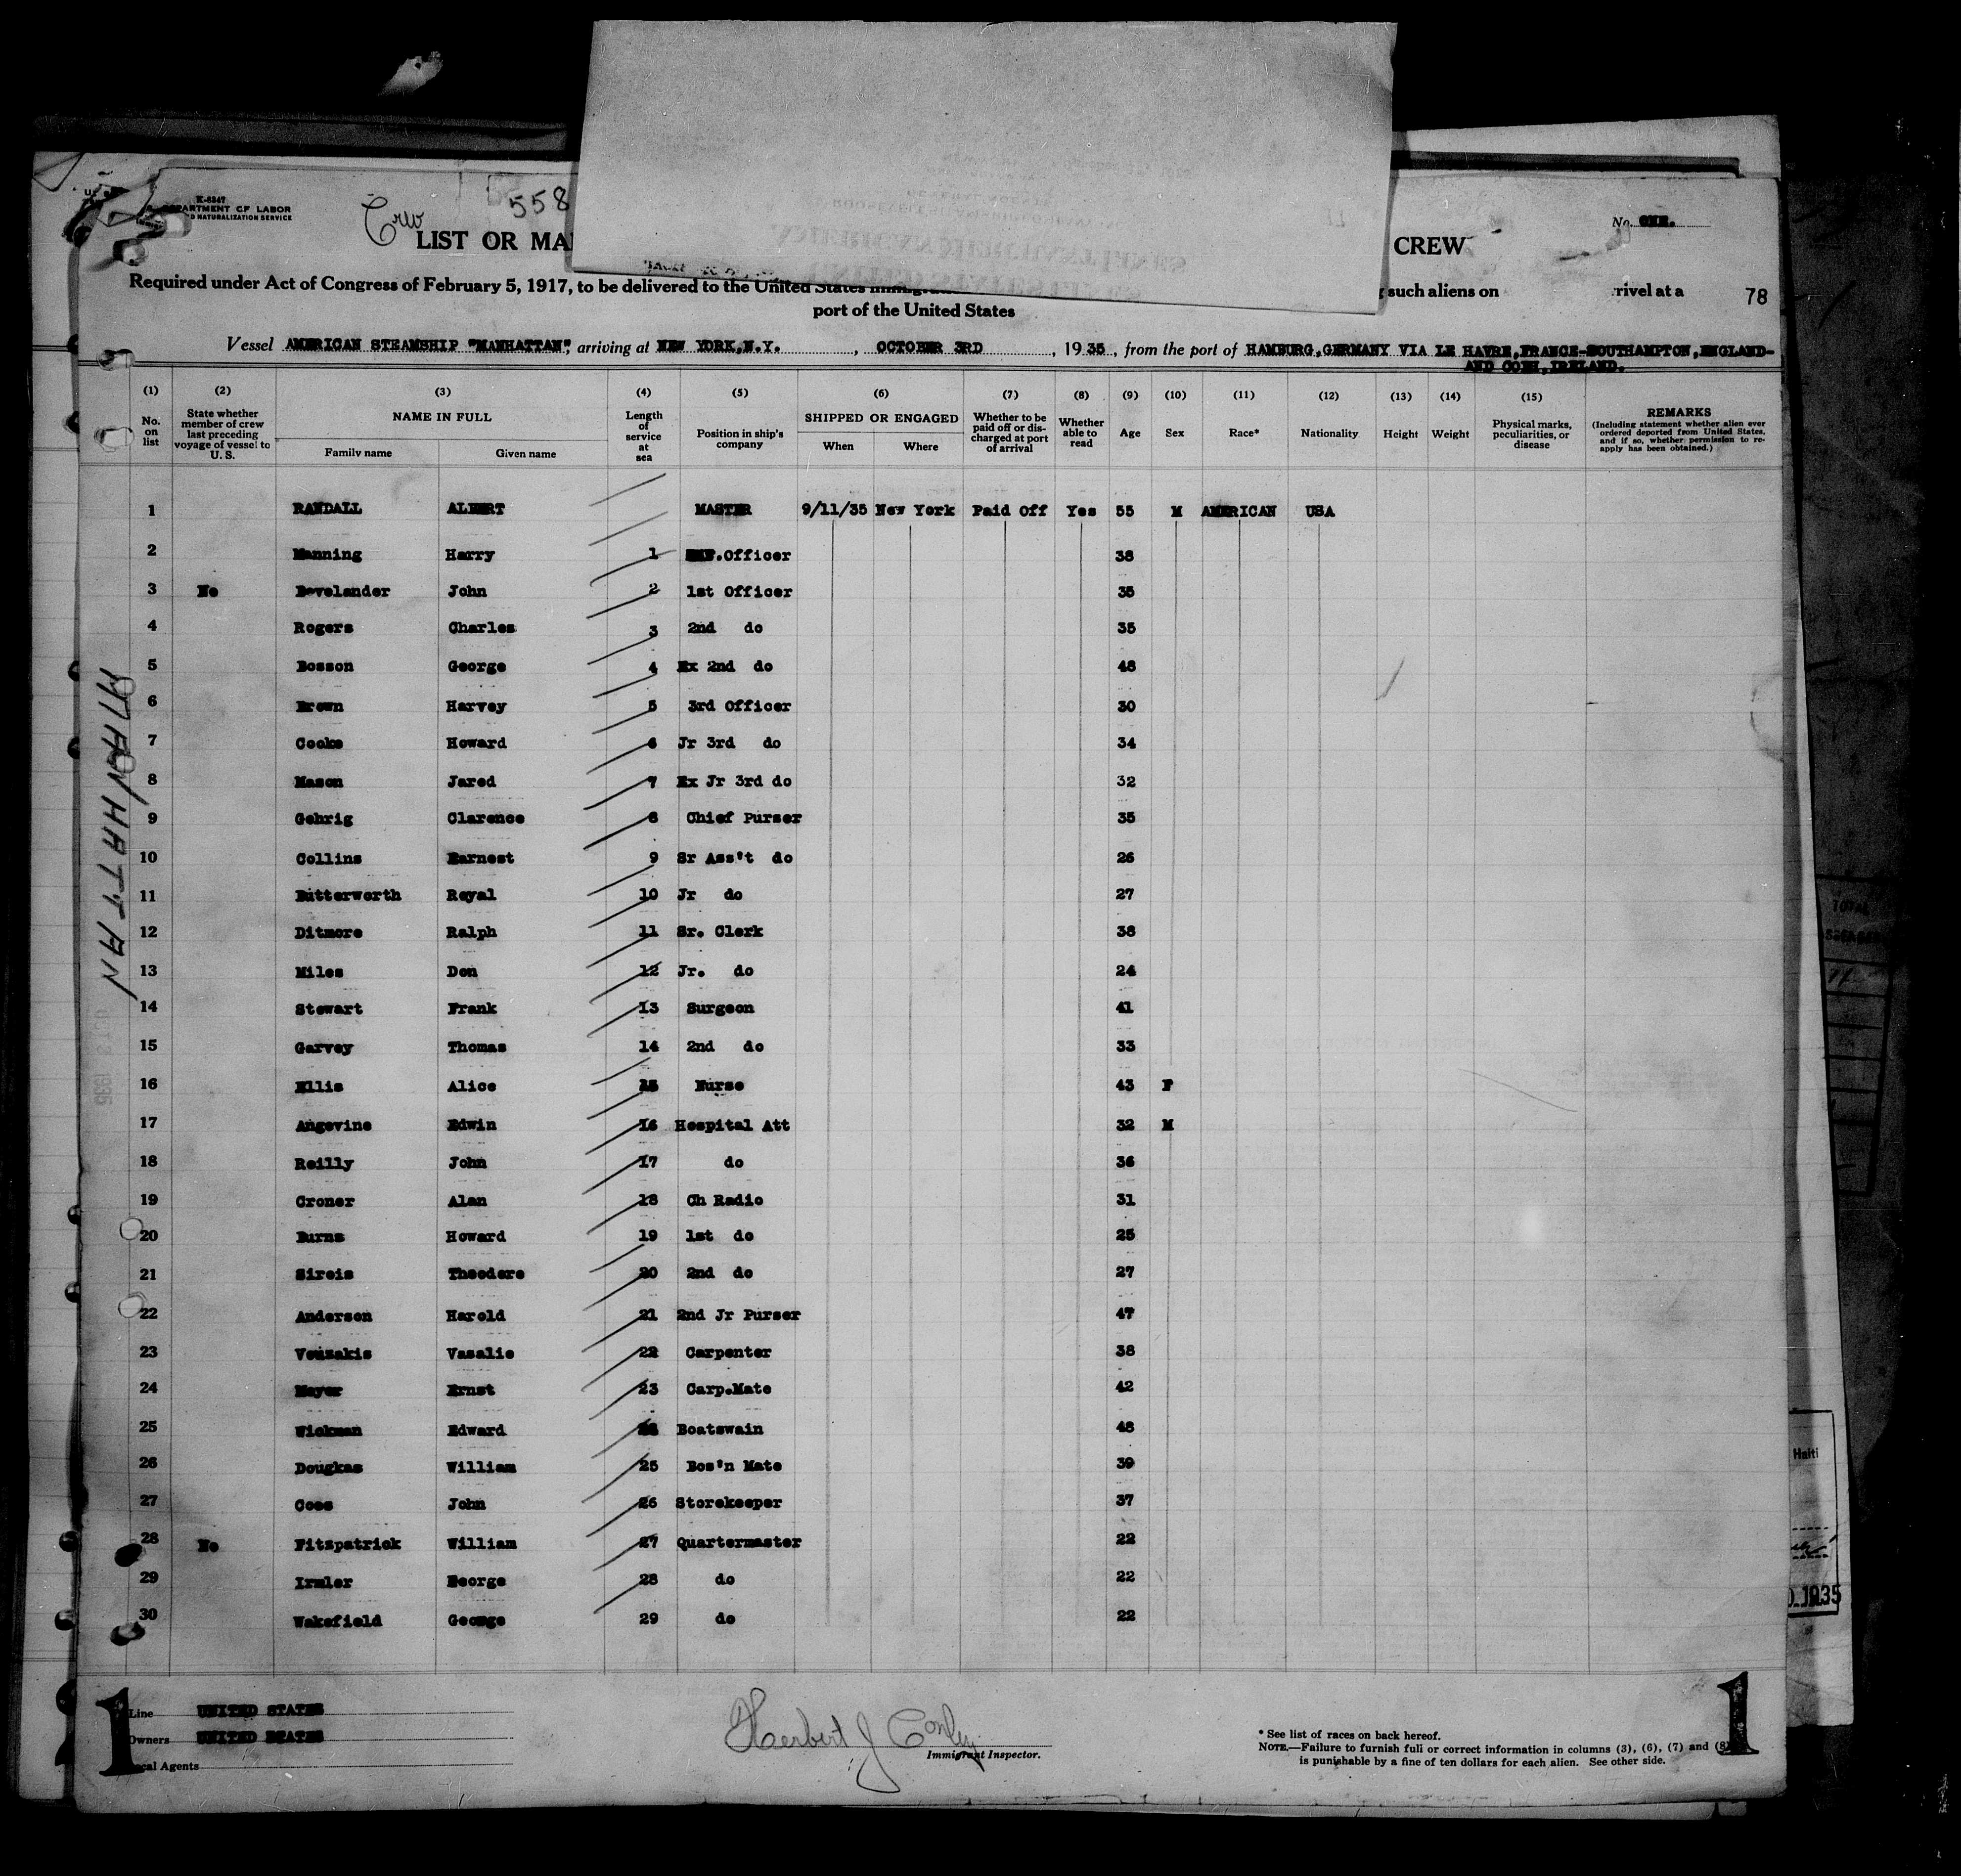 K-6347
DEPARTMENT OF LABOR
D NATURALIZATION SERVICE
Crew
558
LIST OR MA
CREW
No. ONE.
Required under Act of Congress of February 5, 1917, to be delivered to the United States
such aliens on
rivel at a
78
port of the United States
Vessel AMERICAN STEAMSHIP "MANHATTAN", arriving at NEW YORK,N.Y., OCTOBER 3RD, 1935, from the port of HAMBURG,GERMANY VIA LE HAVRE,FRANCE-SOUTHAMPTON,ENGLAND-
AND COBH,IRELAND.
(1) No. on list
(2) State whether member of crew last preceding voyage of vessel to U. S.
(3) NAME IN FULL Family name Given name
(4) Length of service at sea
(5) Position in ship's company
(6) SHIPPED OR ENGAGED When Where
(7) Whether to be paid off or discharged at port of arrival
(8) Whether able to read
(9) Age
(10) Sex
(11) Race*
(12) Nationality
(13) Height
(14) Weight
(15) Physical marks, peculiarities, or disease
REMARKS (Including statement whether alien ever ordered deported from United States, and if so, whether permission to re-apply has been obtained.)
1 RANDALL ALBERT MASTER 9/11/35 New York Paid Off Yes 55 M AMERICAN USA
2 Manning Harry 1 .Officer 38
3 No Bovelander John 2 1st Officer 35
4 Rogers Charles 3 2nd do 35
5 Bosson George 4 Ex 2nd do 48
6 Brown Harvey 5 3rd Officer 30
7 Cooke Howard 6 Jr 3rd do 34
8 Mason Jared 7 Ex Jr 3rd do 32
9 Gehrig Clarence 8 Chief Purser 35
10 Collins Earnest 9 Sr Ass't do 26
11 Butterworth Royal 10 Jr do 27
12 Ditmore Ralph 11 Sr. Clerk 38
13 Miles Don 12 Jr. do 24
14 Stewart Frank 13 Surgeon 41
15 Garvey Thomas 14 2nd do 33
16 Ellis Alice 15 Nurse 43 F
17 Angevine Edwin 16 Hospital Att 32 M
18 Reilly John 17 do 36
19 Croner Alan 18 Ch Radio 31
20 Burns Howard 19 1st do 25
21 Sirois Theodore 20 2nd do 27
22 Anderson Harold 21 2nd Jr Purser 47
23 Vouzakis Vasalie 22 Carpenter 38
24 Meyer Ernst 23 Carp.Mate 42
25 Wickman Edward Boatswain 48
26 Dougkas William 25 Bos'n Mate 39
27 Coes John 26 Storekeeper 37
28 No Fitzpatrick William 27 Quartermaster 22
29 Irmler George 28 do 22
30 Wakefield George 29 do 22
MANHATTAN
OCT 3 1935
1
Line UNITED STATES
Owners UNITED STATES
cal Agents
Herbert J Conley
Immigrant Inspector.
* See list of races on back hereof.
NOTE.—Failure to furnish full or correct information in columns (3), (6), (7) and (8)
is punishable by a fine of ten dollars for each alien. See other side.
1
TOTAL
Haiti
1935